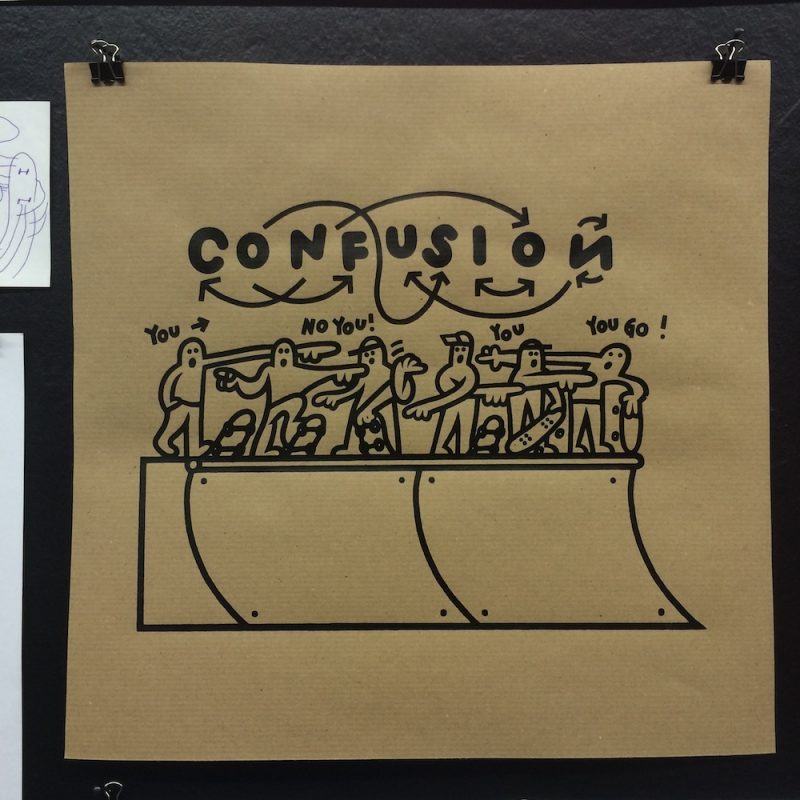 CONFUSION
YOU → NO YOU! YOU YOU GO !